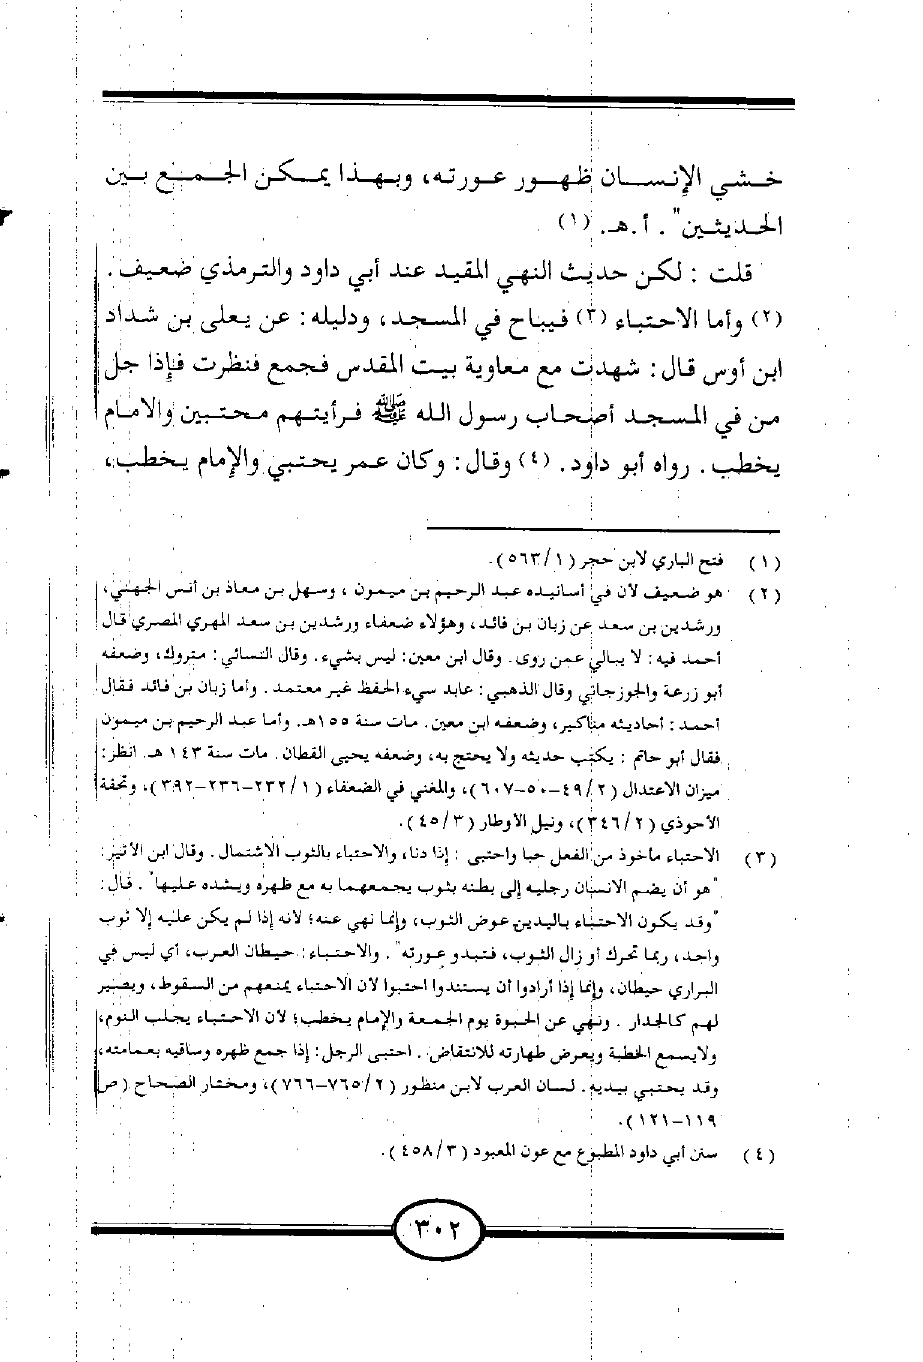 خشي الإنسان ظهور عورته، وبهذا يمكن الجمع بين
الحديثين". أ.هـ. (١)
قلت : لكن حديث النهي المقيد عند أبي داود والترمذي ضعيف.
(٢) وأما الاحتباء (٣) فيباح في المسجد، ودليله: عن يعلى بن شداد
ابن أوس قال: شهدت مع معاوية بيت المقدس فجمع فنظرت فإذا جل
من في المسجد أصحاب رسول الله ﷺ فرأيتهم محتبين والامام
يخطب. رواه أبو داود. (٤) وقال: وكان عمر يحتبي والإمام يخطب،
(١) فتح الباري لابن حجر (١/ ٥٦٣).
(٢) هو ضعيف لأن في أسانيده عبد الرحيم بن ميمون ، وسهل بن معاذ بن أنس الجهني،
ورشدين بن سعد عن زبان بن فائد، وهؤلاء ضعفاء ورشدين بن سعد المهري المصري قال
أحمد فيه: لا يبالي عمن روى. وقال ابن معين: ليس بشيء. وقال النسائي: متروك، وضعفه
أبو زرعة والجوزجاني وقال الذهبي: عابد سيء الحفظ غير معتمد. وأما زبان بن فائد فقال
أحمد: أحاديثه مناكير، وضعفه ابن معين. مات سنة ١٥٥هـ. وأما عبد الرحيم بن ميمون
فقال أبو حاتم : يكتب حديثه ولا يحتج به، وضعفه يحيى القطان. مات سنة ١٤٣ هـ. انظر:
ميزان الاعتدال (٢/ ٤٩-٥٠-٦٠٧)، والمغني في الضعفاء (١/ ٢٣٢-٢٣٦-٣٩٢)، وتحفة
الأحوذي (٢/ ٣٤٦)، ونيل الأوطار (٣/ ٤٥).
(٣) الاحتباء مأخوذ من الفعل حبا واحتبى : إذا دنا، والاحتباء بالثوب الاشتمال. وقال ابن الأثير:
"هو أن يضم الانسان رجليه إلى بطنه بثوب يجمعهما به مع ظهره ويشده عليها". قال:
"وقد يكون الاحتباء باليدين عوض الثوب، وإنما نهي عنه؛ لأنه إذا لم يكن عليه إلا ثوب
واحد، ربما تحرك أو زال الثوب، فتبدو عورته". والاحتباء: حيطان العرب، أي ليس في
البراري حيطان، وإنما إذا أرادوا أن يستندوا احتبوا لأن الاحتباء يمنعهم من السقوط، ويصير
لهم كالجدار . ونهي عن الحبوة يوم الجمعة والإمام يخطب؛ لأن الاحتباء يجلب النوم،
ولايسمع الخطبة ويعرض طهارته للانتقاض. احتبى الرجل: إذا جمع ظهره وساقيه بعمامته،
وقد يحتبي بيديه. لسان العرب لابن منظور (٢/ ٧٦٥-٧٦٦)، ومختار الصحاح (ص
١١٩-١٢١).
(٤) سنن أبي داود المطبوع مع عون المعبود (٣/ ٤٥٨).
٣٠٢